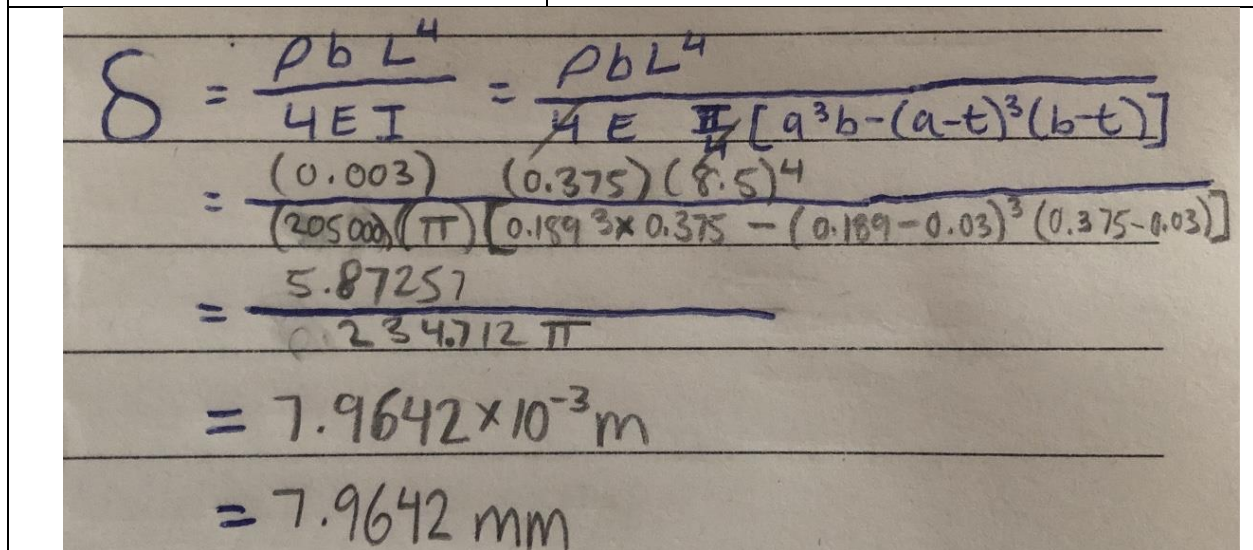 δ = ρbL⁴ / 4EI = ρbL⁴ / 4E π/4 [a³b-(a-t)³(b-t)]
= (0.003) (0.375)(8.5)⁴ / (205000)(π)[0.189³×0.375 - (0.189-0.03)³(0.375-0.03)]
= 5.87257 / 234.712π
= 7.9642×10⁻³m
= 7.9642 mm